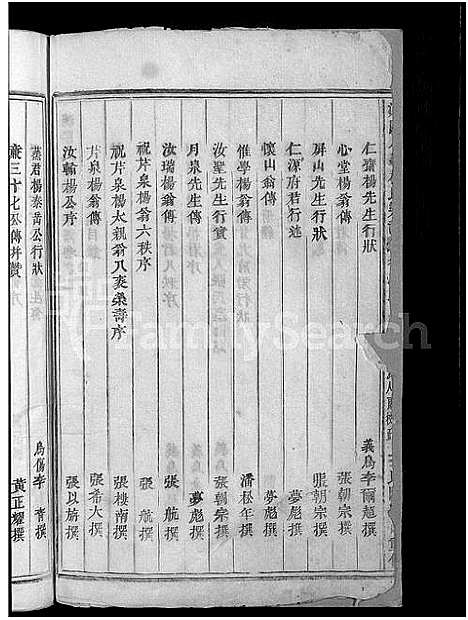 仁齋楊先生行狀 義烏李爾超撰
心堂楊翁傳 張朝宗撰
屏山先生行狀 張朝宗撰
仁源府君行述 夢彪撰
懷山翁傳 夢彪撰
惟學楊翁傳 潘松年撰
汝聖先生行實 張朝宗撰
月泉先生傳 夢彪撰
汝瑞楊翁傳 張航撰
祝芹泉楊翁六秩序 張航撰
祝芹泉楊太親翁八袠榮壽序 張棲南撰
芹泉楊翁傳 張希大撰
汝輸楊公序 張以旂撰
蒸君楊泰岳公行狀 烏傷李青撰
兼三十七公傳并贊 黃正耀撰
FamilySearch